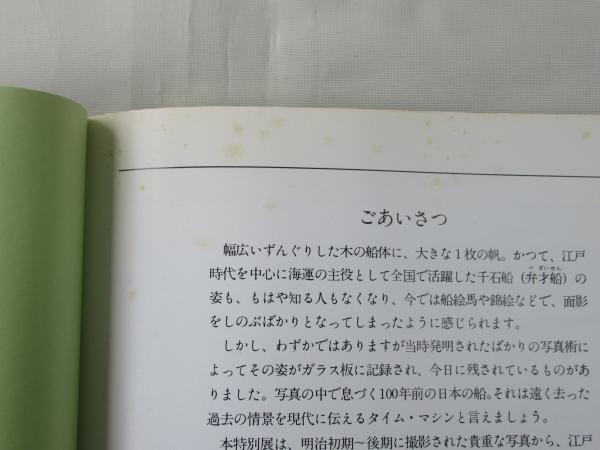 ごあいさつ
幅広いずんぐりした木の船体に、大きな1枚の帆。かつて、江戸
時代を中心に海運の主役として全国で活躍した千石船（弁才船）の
べざいせん
姿も、もはや知る人もなくなり、今では船絵馬や錦絵などで、面影
をしのぶばかりとなってしまったように感じられます。
しかし、わずかではありますが当時発明されたばかりの写真術に
よってその姿がガラス板に記録され、今日に残されているものがあ
りました。写真の中で息づく100年前の日本の船。それは遠く去った
過去の情景を現代に伝えるタイム・マシンと言えましょう。
本特別展は、明治初期〜後期に撮影された貴重な写真から、江戸